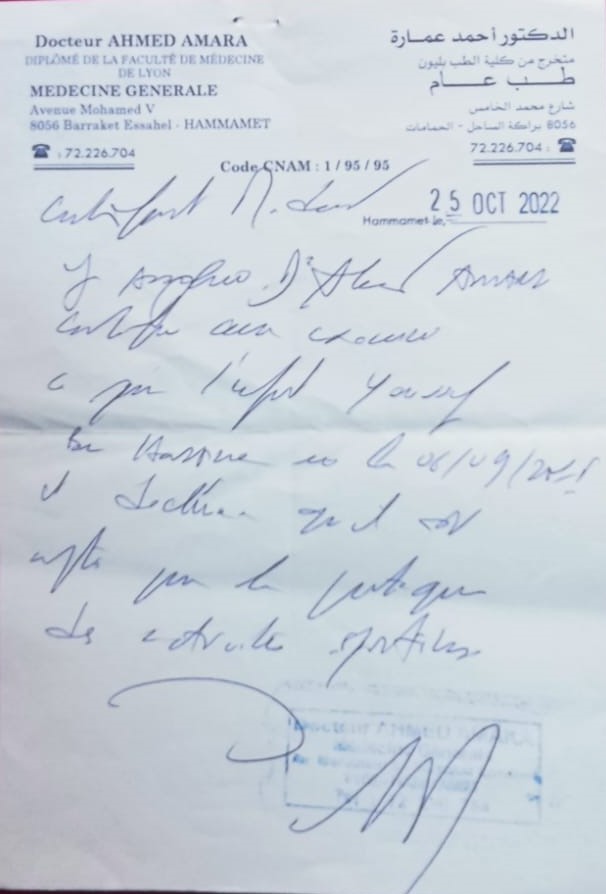 Docteur AHMED AMARA
DIPLÔMÉ DE LA FACULTÉ DE MÉDECINE
DE LYON
MEDECINE GENERALE
Avenue Mohamed V
8056 Barraket Essahel - HAMMAMET
☎ : 72.226.704
الدكتور أحمد عمارة
متخرج من كلية الطب بليون
طب عام
شارع محمد الخامس
8056 براكة الساحل - الحمامات
72.226.704 : ☎
Code CNAM : 1 / 95 / 95
Hammamet le, 25 OCT 2022
Certificat
Dr Ahmed AMARA
certifie
l'enfant Youssef
Ben le 06/09/
et déclare qu'il est
apte pour la pratique
des activités sportives
Docteur AHMED AMARA